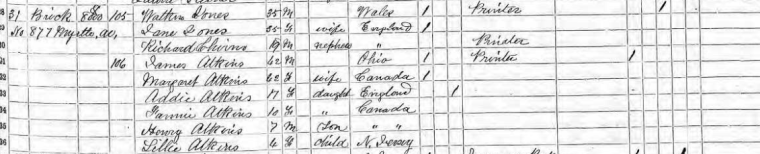 31 Brick 8000 105 Watkin Jones 35 M Wales 1 Printer 1
No. 877 Myrtle av, Jane Jones 35 F wife England 1
Richard 19 M nephew " Printer
106 James Atkins 42 M Ohio 1 Printer 1
Margaret Atkins 42 F wife Canada 1
Addie Atkins 17 F daught England 1
Fannie Atkins 10 F " Canada
Henry Atkins 7 M Son " "
Lillie Atkins 4 F child N. Jersey